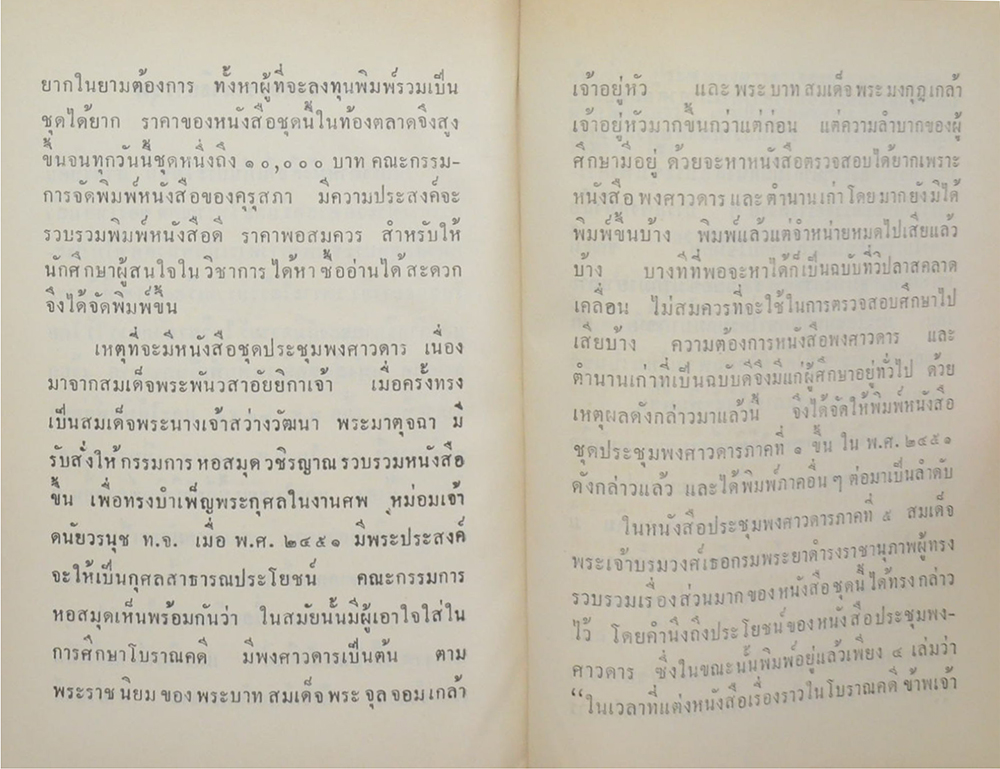 ยากในยามต้องการ ทั้งหาผู้ที่จะลงทุนพิมพ์รวมเป็น
ชุดได้ยาก ราคาของหนังสือชุดนี้ในท้องตลาดจึงสูง
ขึ้นจนทุกวันนี้ชุดหนึ่งถึง ๑๐,๐๐๐ บาท คณะกรรม-
การจัดพิมพ์หนังสือของคุรุสภา มีความประสงค์จะ
รวบรวมพิมพ์หนังสือดี ราคาพอสมควร สำหรับให้
นักศึกษาผู้สนใจในวิชาการ ได้หาซื้ออ่านได้สะดวก
จึงได้จัดพิมพ์ขึ้น
เหตุที่จะมีหนังสือชุดประชุมพงศาวดาร เนื่อง
มาจากสมเด็จพระพันวสาอัยยิกาเจ้า เมื่อครั้งทรง
เป็นสมเด็จพระนางเจ้าสว่างวัฒนา พระมาตุจฉา มี
รับสั่งให้กรรมการหอสมุดวชิรญาณรวบรวมหนังสือ
ขึ้น เพื่อทรงบำเพ็ญพระกุศลในงานศพ หม่อมเจ้า
ดนัยวรนุช ท.จ. เมื่อ พ.ศ. ๒๔๕๑ มีพระประสงค์
จะให้เป็นกุศลสาธารณประโยชน์ คณะกรรมการ
หอสมุดเห็นพร้อมกันว่า ในสมัยนั้นมีผู้เอาใจใส่ใน
การศึกษาโบราณคดี มีพงศาวดารเป็นต้น ตาม
พระราชนิยมของพระบาทสมเด็จพระจุลจอมเกล้า
เจ้าอยู่หัว และพระบาทสมเด็จพระมงกุฎเกล้า
เจ้าอยู่หัวมากขึ้นกว่าแต่ก่อน แต่ความลำบากของผู้
ศึกษามีอยู่ ด้วยจะหาหนังสือตรวจสอบได้ยากเพราะ
หนังสือพงศาวดารและตำนานเก่าโดยมากยังมิได้
พิมพ์ขึ้นบ้าง พิมพ์แล้วแต่จำหน่ายหมดไปเสียแล้ว
บ้าง บางทีที่พอจะหาได้ก็เป็นฉบับที่วิปลาสคลาด
เคลื่อน ไม่สมควรที่จะใช้ในการตรวจสอบศึกษาไป
เสียบ้าง ความต้องการหนังสือพงศาวดาร และ
ตำนานเก่าที่เป็นฉบับดีจึงมีแก่ผู้ศึกษาอยู่ทั่วไป ด้วย
เหตุผลดังกล่าวมาแล้วนี้ จึงได้จัดให้พิมพ์หนังสือ
ชุดประชุมพงศาวดารภาคที่ ๑ ขึ้น ใน พ.ศ. ๒๔๕๑
ดังกล่าวแล้ว และได้พิมพ์ภาคอื่น ๆ ต่อมาเป็นลำดับ
ในหนังสือประชุมพงศาวดารภาคที่ ๕ สมเด็จ
พระเจ้าบรมวงศ์เธอกรมพระยาดำรงราชานุภาพผู้ทรง
รวบรวมเรื่องส่วนมากของหนังสือชุดนี้ ได้ทรงกล่าว
ไว้ โดยคำนึงถึงประโยชน์ของหนังสือประชุมพง-
ศาวดาร ซึ่งในขณะนั้นพิมพ์อยู่แล้วเพียง ๔ เล่มว่า
“ในเวลาที่แต่งหนังสือเรื่องราวในโบราณคดี ข้าพเจ้า